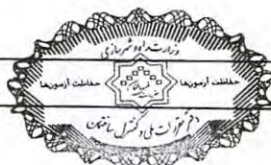 وزارت راه و شهرسازی
حفاظت آزمونها حفاظت آزمونها
دفتر مقررات ملی و کنترل ساختمان